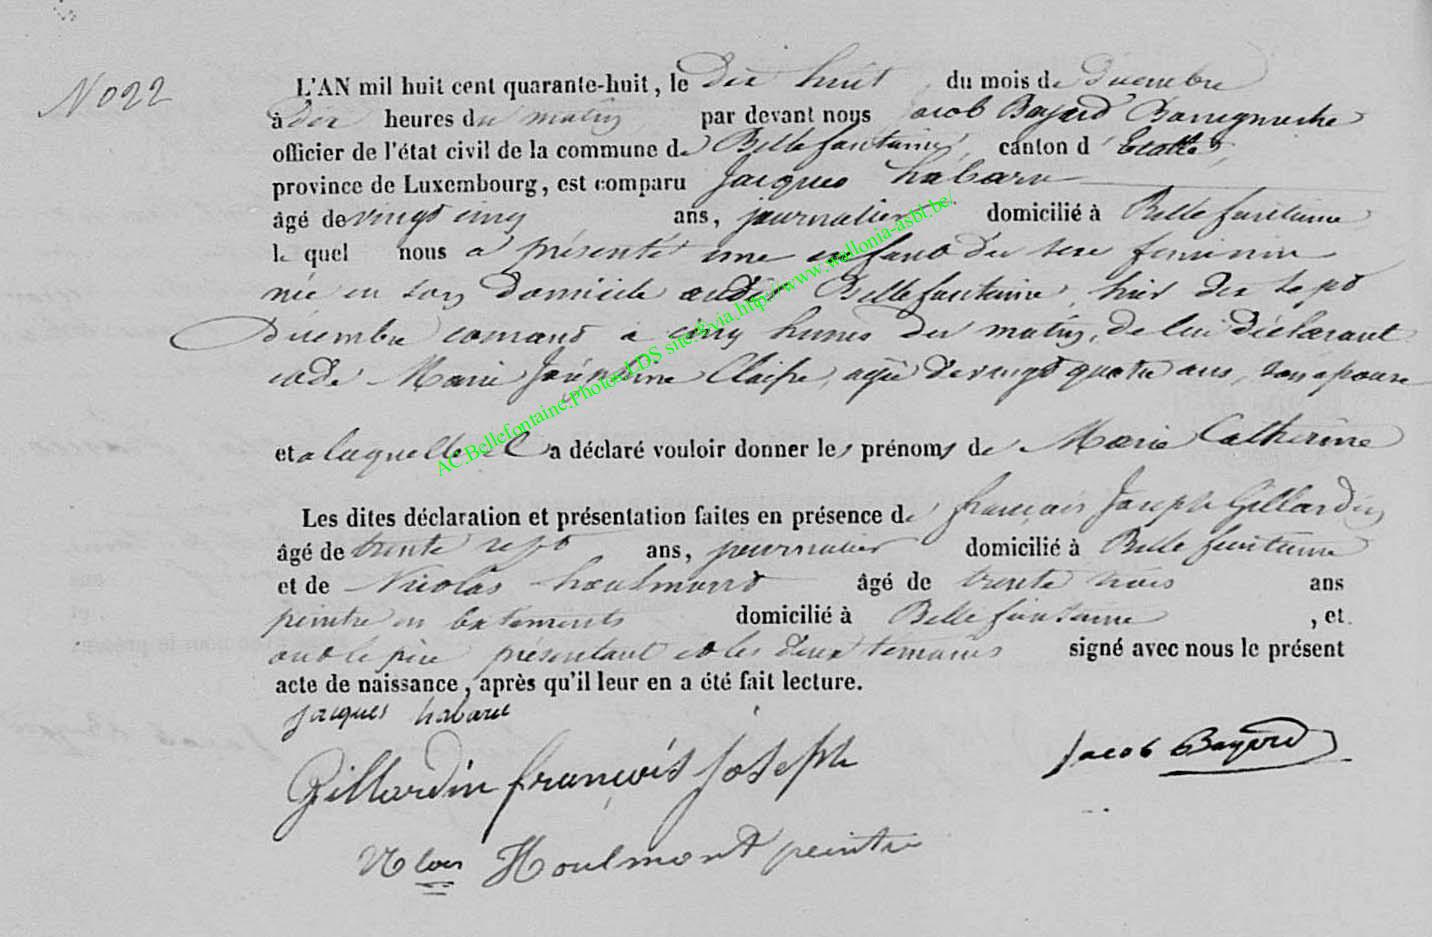 N° 22
L'AN mil huit cent quarante-huit, le dix huit du mois de Décembre
à dix heures du matin par devant nous Jacob Bayard Bourgmestre
officier de l'état civil de la commune de Bellefontaine, canton d'Etalle,
province de Luxembourg, est comparu Jacques habaru
âgé de vingt cinq ans, journalier domicilié à Bellefontaine
le quel nous a présenté une enfant du sexe feminin
née en son Domicile audit Bellefontaine, hier dix sept
Décembre courant à cinq heures du matin, de lui déclarant
et de Marie Claisse, agée de vingt quatre ans, son epouse
et a laquelle il a déclaré vouloir donner les prénoms de Marie Catherine
Les dites déclaration et présentation faites en présence de françois Joseph Gillardin
âgé de trente sept ans, journalier domicilié à Bellefontaine
et de Nicolas houlmont âgé de trente trois ans
peintre en batements domicilié à Bellefontaine, et
ont le père présentant et les deux temoins signé avec nous le présent
acte de naissance, après qu'il leur en a été fait lecture.
jacques habaru
Gillardin françois joseph
Jacob Bayard
Nlas Houlmont peintre
AC.Bellefontaine.Photos.LDS site.&via.http://www.wallonia-asbl.be/